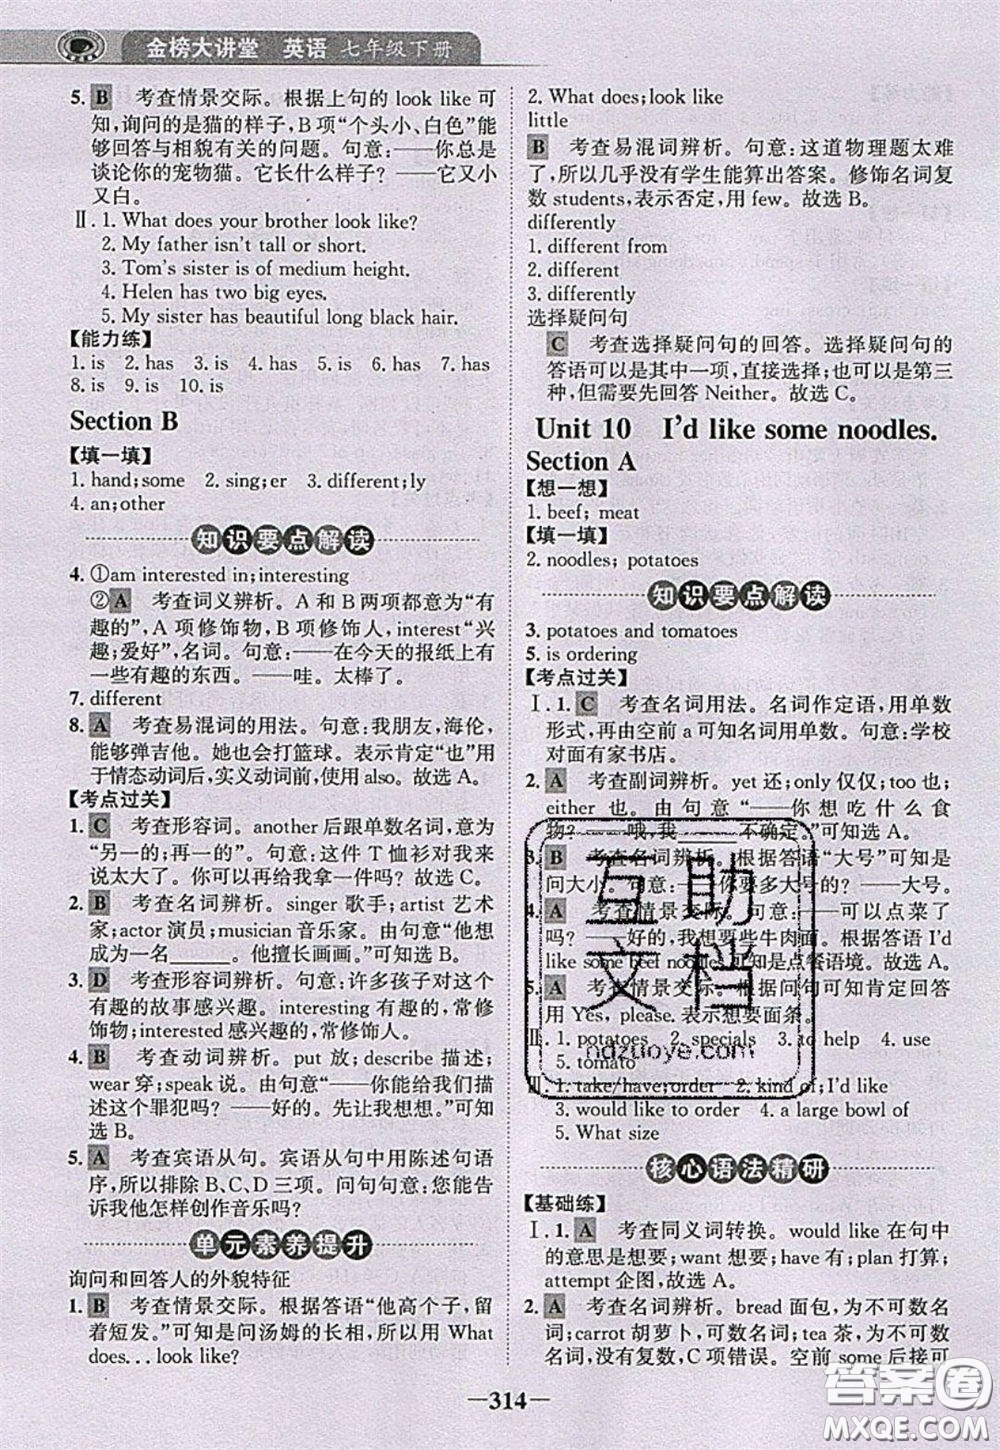 金榜大讲堂 英语 七年级下册
5. B 考查情景交际。根据上句的 look like 可
知,询问的是猫的样子,B 项“个头小、白色”能
够回答与相貌有关的问题。句意:——你总是
谈论你的宠物猫。它长什么样子?——它又小
又白。
Ⅱ. 1. What does your brother look like?
2. My father isn't tall or short.
3. Tom's sister is of medium height.
4. Helen has two big eyes.
5. My sister has beautiful long black hair.
【能力练】
1. is 2. has 3. is 4. has 5. is 6. has 7. has
8. is 9. is 10. is
Section B
【填一填】
1. hand;some 2. sing;er 3. different;ly
4. an;other
知识要点解读
4. ①am interested in;interesting
②A 考查词义辨析。A 和 B 两项都意为“有
趣的”,A 项修饰物,B 项修饰人,interest“兴
趣;爱好”,名词。句意:——在今天的报纸上有
一些有趣的东西。——哇。太棒了。
7. different
8. A 考查易混词的用法。句意:我朋友,海伦,
能够弹吉他。她也会打篮球。表示肯定“也”用
于情态动词后,实义动词前,使用 also。故选 A。
【考点过关】
1. C 考查形容词。another 后跟单数名词,意为
“另一的;再一的”。句意:这件 T 恤衫对我来
说太大了。你可以再给我拿一件吗?故选 C。
2. B 考查名词辨析。singer 歌手;artist 艺术
家;actor 演员;musician 音乐家。由句意“他想
成为一名______。他擅长画画。”可知选 B。
3. D 考查形容词辨析。句意:许多孩子对这个
有趣的故事感兴趣。interesting 有趣的,常修
饰物;interested 感兴趣的,常修饰人。
4. B 考查动词辨析。put 放;describe 描述;
wear 穿;speak 说。由句意“——你能给我们描
述这个罪犯吗?——好的。先让我想想。”可知
选 B。
5. A 考查宾语从句。宾语从句中用陈述句语
序,所以排除 B、C、D 三项。问句句意:您能告
诉我他怎样创作音乐吗?
单元素养提升
询问和回答人的外貌特征
1. B 考查情景交际。根据答语“他高个子,留
着短发。”可知是问汤姆的长相,所以用 What
does...look like?
2. What does;look like
little
B 考查易混词辨析。句意:这道物理题太难
了,所以几乎没有学生能算出答案。修饰名词复
数 students,表示否定,用 few。故选 B。
differently
1. different from
2. different
3. differently
选择疑问句
C 考查选择疑问句的回答。选择疑问句的
答语可以是其中一项,直接选择;也可以是第三
种,但需要先回答 Neither。故选 C。
Unit 10 I'd like some noodles.
Section A
【想一想】
1. beef; meat
【填一填】
2. noodles; potatoes
知识要点解读
3. potatoes and tomatoes
5. is ordering
【考点过关】
Ⅰ. 1. C 考查名词用法。名词作定语,用单数
形式,再由空前 a 可知名词用单数。句意:学校
对面有家书店。
2. A 考查副词辨析。yet 还;only 仅仅;too 也;
either 也。由句意“——你想吃什么食
物?——哦,我______不确定。”可知选 A。
3. B 考查名词辨析。根据答语“大号”可知是
问大小。句意:——你要多大号的?——大号。
4. A 考查情景交际。句意:——可以点菜了
吗?——好的,我想要些牛肉面。根据答语 I'd
like some beef noodles 可知是点餐语境。故选 A。
5. A 考查情景交际。句意可知肯定回答
用 Yes, please. 表示想要面条。
Ⅱ. 1. potatoes 2. specials 3. to help 4. use
5. tomato
Ⅲ. 1. take/have;order 2. kind of;I'd like
3. would like to order 4. a large bowl of
5. What size
核心语法精研
【基础练】
Ⅰ. 1. A 考查同义词转换。would like 在句中
的意思是想要;want 想要;have 有;plan 打算;
attempt 企图,故选 A。
2. A 考查名词辨析。bread 面包,为不可数名
词;carrot 胡萝卜,可数名词;tea 茶,为不可数
名词,没有复数,C 项错误。空前 some 后接可
—314—
互助
文档
hdzuoye.com
答案圈
MXQE.COM